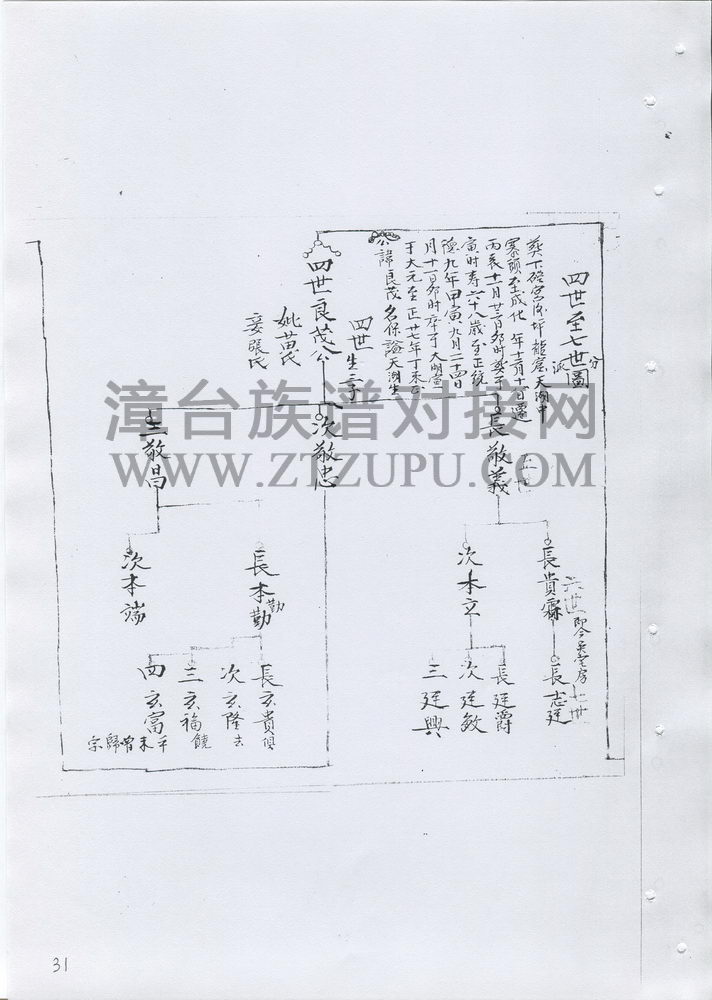 四世至七世圖
分派
公諱良茂名保謚天湖生
于大元至正廿七年丁未
月十一日卯時卒于大明宣
德九年甲寅九月二十四
寅时寿六十八歲至正統
丙亥十一月廿二日卯时葬于
寨頭至成化 年十二月十一日遷
葬下
天湖中
四世良茂公
妣苗氏
妾張氏
四世
生三子
長敬義
次敬忠
三敬昌
長貴霖
六世即今吴宅房
七世
次本立
長本勤
勤
次本端
長志廷
長廷爵
次廷敏
三廷興
長玄貴俱
次玄隆去
三玄福饒
四玄富平
未曾歸宗
漳台族谱对接网
WWW.ZTZUPU.COM
31